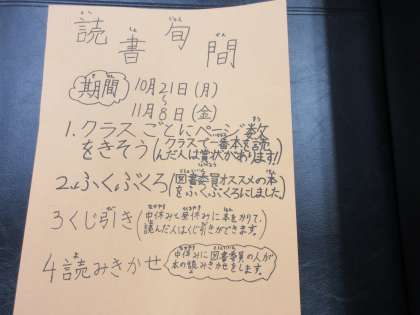 読書旬間
期間 10月21日(月)
～
11月8日(金)
1.クラスごとにページ数
をきそう(クラスで一番本を読
んだ人は賞状がわります!)
2.ふくぶくろ(図書委員オススメの本
をふくぶくろにしました。)
3くじ引き(中休みと昼休みに本をかりて、
読んだ人はくじ引きができます。)
4読みきかせ(中休みに図書委員の人が
本の読みきかせをします。)